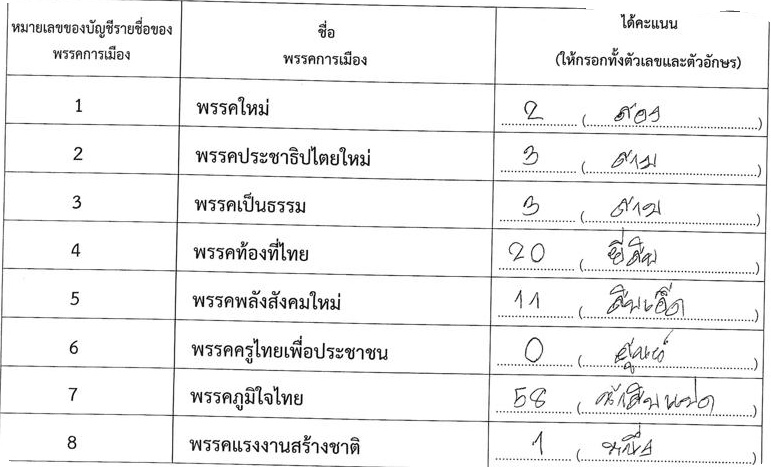 หมายเลขของบัญชีรายชื่อของ ชื่อ ได้คะแนน
พรรคการเมือง พรรคการเมือง (ให้กรอกทั้งตัวเลขและตัวอักษร)
1 พรรคใหม่ 2 (สอง)
2 พรรคประชาธิปไตยใหม่ 3 (สาม)
3 พรรคเป็นธรรม 3 (สาม)
4 พรรคท้องที่ไทย 20 (ยี่สิบ)
5 พรรคพลังสังคมใหม่ 11 (สิบเอ็ด)
6 พรรคครูไทยเพื่อประชาชน 0 (ศูนย์)
7 พรรคภูมิใจไทย 58 (ห้าสิบแปด)
8 พรรคแรงงานสร้างชาติ 1 (หนึ่ง)